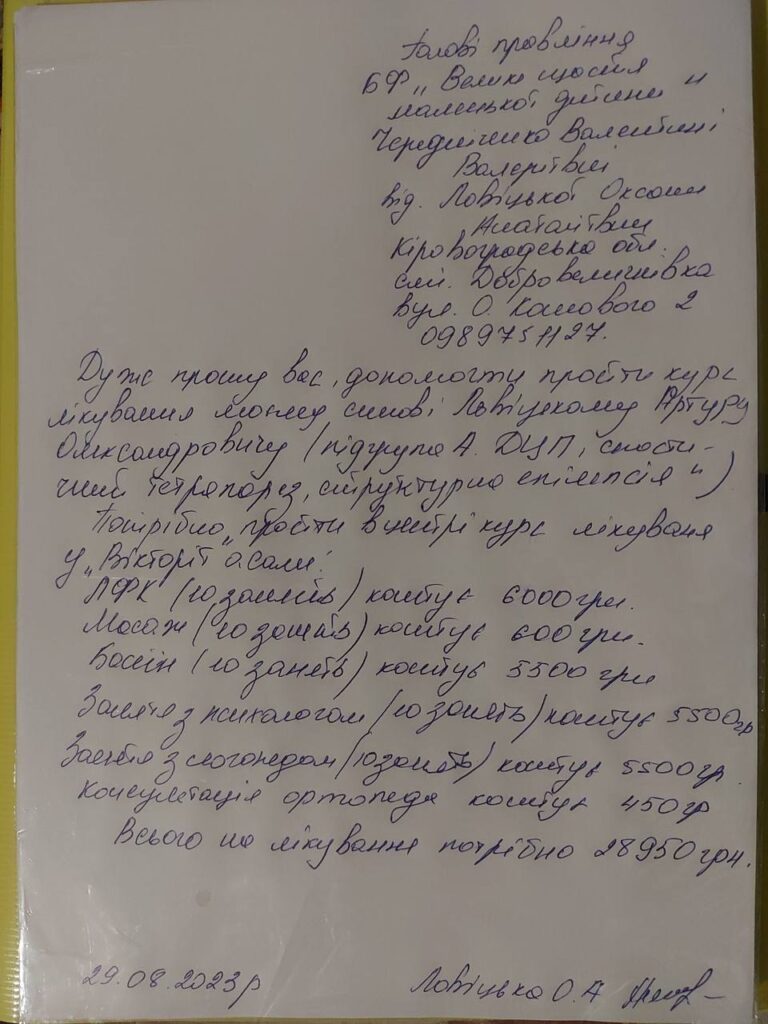 Голові правління
БФ „Велике щастя
маленької дитини"
Чередніченко Валентині
Валеріївні
від. Ловіцької Оксани
Анатоліївни
Кіровоградська обл.
смт. Добровеличківка
вул. О. 2
0989751127.
Дуже прошу вас, допомогти пройти курс
лікування моєму синові Ловіцькому Артуру
Олександровичу (підгрупа А. ДЦП, спасти-
чний тетрапарез, структурна епілепсія")
Потрібно „пройти в центрі курс лікуваня
у „Вікторії
ЛФК (10 занять) коштує 6000грн.
Масаж (10 занять) коштує 600грн.
Басейн (10 занять) коштує 5500 грн
Заняття з психологом (10 занять) коштує 5500гр
Заняття з логопедом (10 занять) коштує 5500гр.
Консультація ортопеда коштує 450гр
Всього на лікування потрібно 28950грн.
29.08.2023р Ловіцька О.А